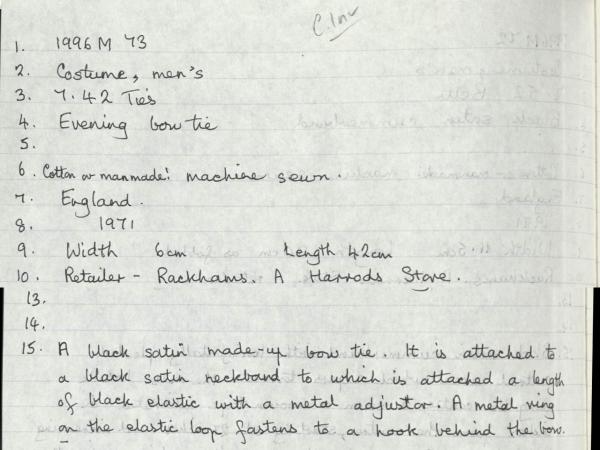 C. Inv
1. 1996 M 73
2. Costume, men's
3. 7.42 Ties
4. Evening bow tie
5.
6. Cotton or manmade: machine sewn.
7. England.
8. 1971
9. Width 6cm Length 42cm
10. Retailer - Rackhams. A Harrods Store.
13.
14.
15. A black satin made-up bow tie. It is attached to
a black satin neckband to which is attached a length
of black elastic with a metal adjustor. A metal ring
on the elastic loop fastens to a hook behind the bow.